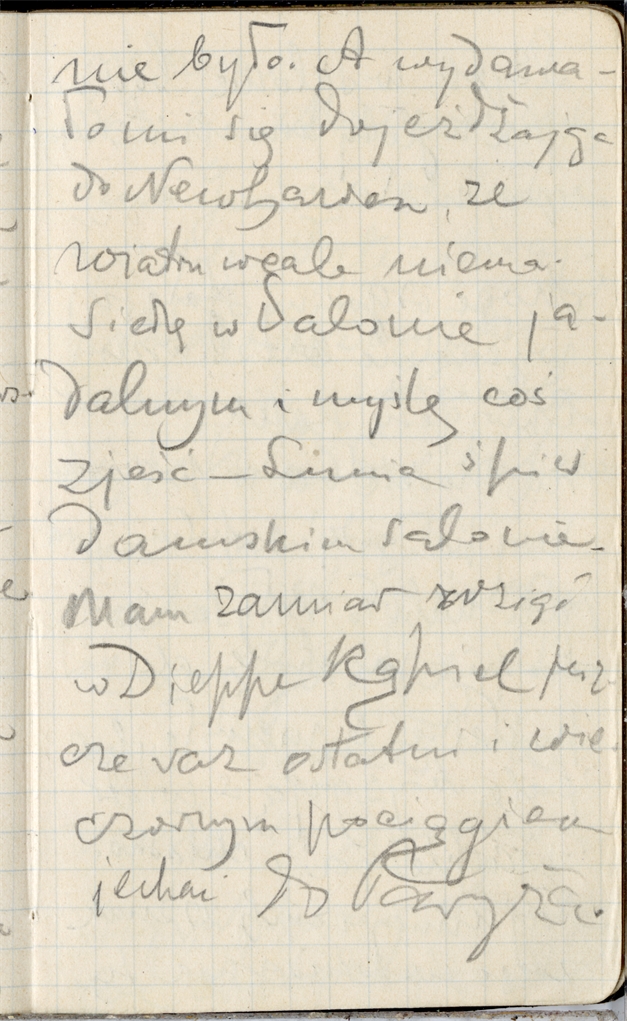 nie było. A wydawa-
ło mi się dojeżdżając
do Newhaven, że
wiatru wcale niema.
Siedzę w Salonie ja-
dalnym i myślę coś
zjeść – śpi w
damskim salonie.
Mam zamiar wziąć
w Dieppe Kąpiel jesz-
cze raz ostatni i wie-
czornym pociągiem
jechać do Paryża.